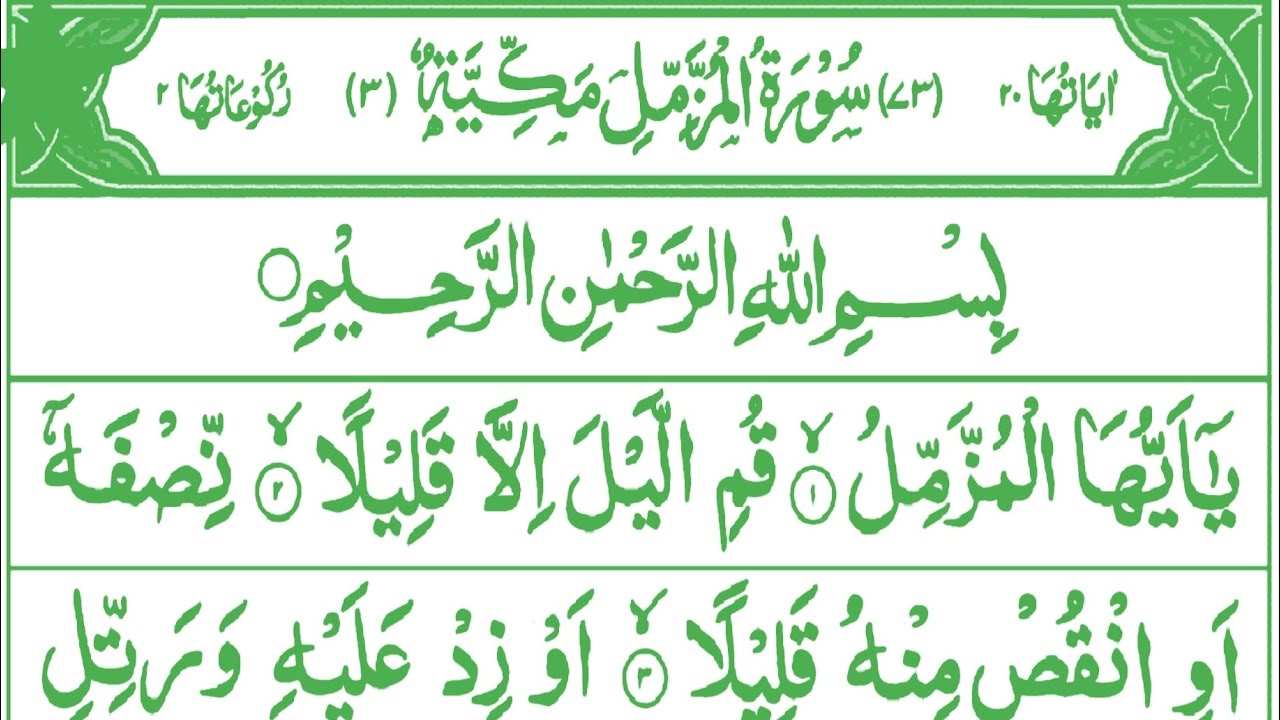 اٰيَاتُهَا ٢٠ (٧٣) سُوْرَةُ الْمُزَّمِّلِ مَكِّيَّةٌ (٣) رُكُوْعَاتُهَا ٢
بِسْمِ اللّٰهِ الرَّحْمٰنِ الرَّحِيْمِ ○
يٰۤاَيُّهَا الْمُزَّمِّلُ ۙ﴿١﴾ قُمِ الَّيْلَ اِلَّا قَلِيْلًا ۙ﴿٢﴾ نِّصْفَهٗۤ
اَوِ انْقُصْ مِنْهُ قَلِيْلًا ۙ﴿٣﴾ اَوْ زِدْ عَلَيْهِ وَرَتِّلِ